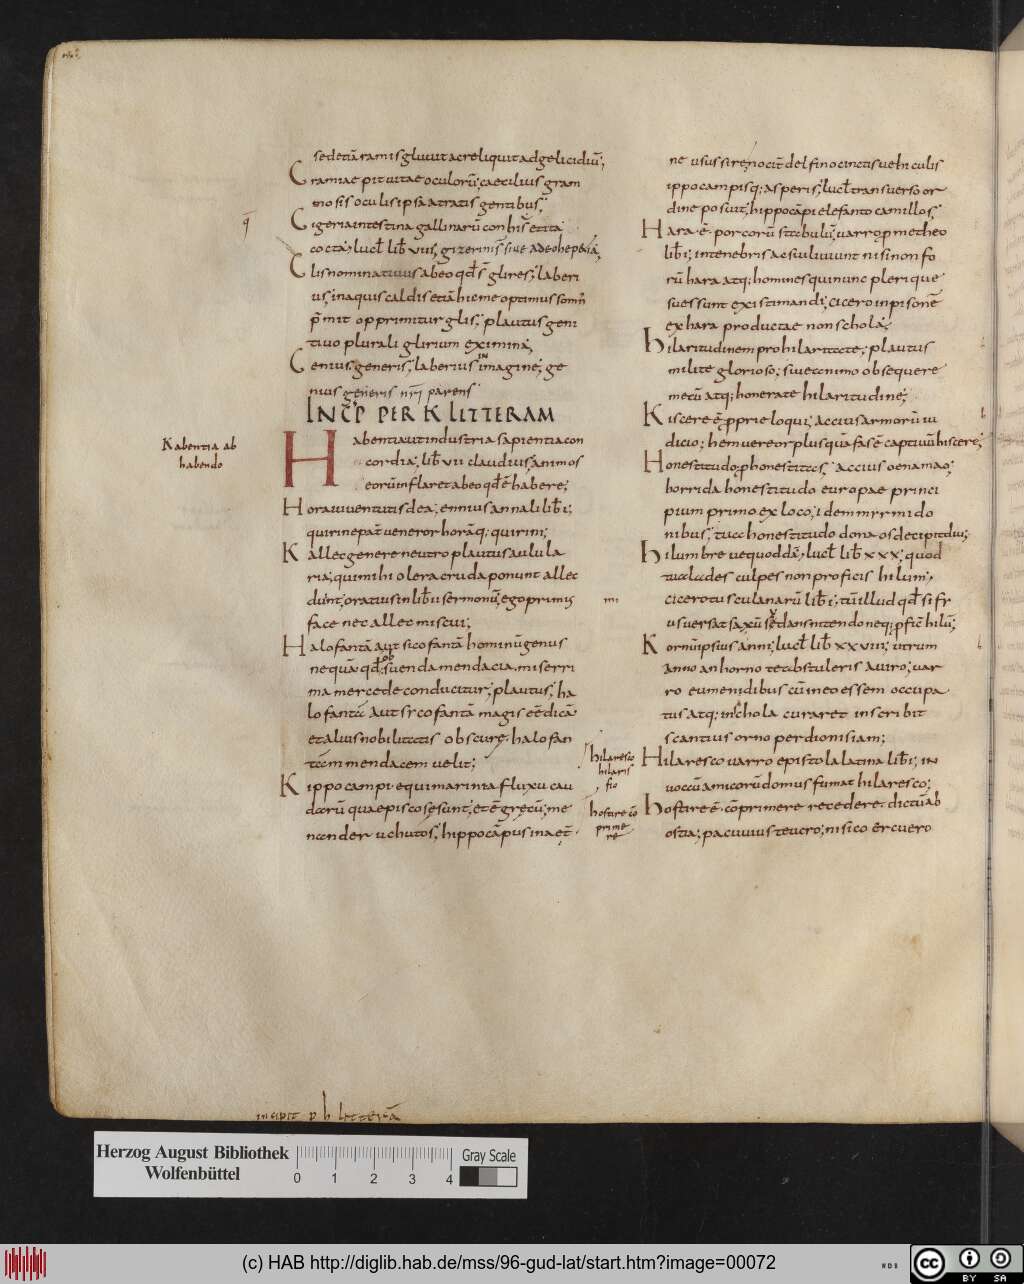 sedetiā ramis gluuit ac reliquit ad gelicidiū;
Cramiae pituitae oculorū; caecilius gram
mosis oculis ipsa atratis gentibus;
Cigeria intestina gallinarū con his etita
cocta; lucł lib̄ viii; gizerinis siue adeo hepatia;
Clis nominatiuus abeo qđ ē glires; laberi
us; in aquis caldis etiā hieme optimus somn̄
p̄mit opprimitur glis; plautus geni
tiuo plurali glirium examina;
Cenius generis; laberius in imagine; ge
nius generis nr̄i parens
INCP̄ PER K LITTERAM
Kabentia ab
habendo
Habentiaut industria sapientia con
cordia; lib̄ vii claudius; animos
eorū inflaret abeo qđ ē habere;
Hora iuuentutis dea; ennius annali lib̄ i;
quirine pat̄ ueneror horāq; quirini;
Kallec genere neutro plautus aulula
ria; qui mihi olera cruda ponunt allec
dunt; oratius in lib̄ ii sermonū; ego primus
faece nec allec miscui;
Halofantā aut sicofantā hominū genus
nequā qđ suenda mendacia miserri
ma mercede conducitur; plautus; ha
lofantā aut sycofantā magis eē dicā
et aluis nobilitatis obscure halofan
tam mendacem uelit;
Kippocampi equi marini a fluxu cau
darū quae piscosę sunt; et ē gręcū; me
nander uchutos; hippocāpus in aet̄
ne usus sirenocit̄ delfino cinctis uehiculis
ippocampisq; asperis; lucł transuerso or
dine posuit; hippocāpi elefanto camillos;
Hara ē porcorū stabulū; uarro p̄metheo
lib̄ i; in tenebris ac suili uiuunt nisi non fo
rū hara atq; homines qui nunc plerique
sues sunt existimandi; cicero in pisonē
ex hara productae non schola;
Hilaritudinem pro hilaritate; plautus
milite glorioso; siue connimo obsequere
mecū atq; honerate hilaritudine;
Kiscere ē pprie loqui; accius armorū iu
dicio; hem uereor plus quā fas ē captiuū hiscere;
Honestitudo; p honestitas; accius oenamao;
horrida honestitudo europae princi
pium primo ex loco; idem myrmido
nibus; tua honestitudo danaos decipit diu;
Hilum breue quoddā; lucł lib̄ xxx; quod
tua laudes culpes non proficis hilum;
cicero tusculanarū lib̄ i; tū illud qđ sify
us uersat saxū sudans nitendo neq; pfic̄ hilū;
Kornū ipsius anni; lucł lib̄ xxviii; utrum
anno an horno te abstuleris auiro; uar
ro eumenidibus cū in eo essem occupa
tus atq; in schola curaret inscribit
scantius orno per dionisiam;
hilaresco
hilaris
fio
Hilaresco uarro epistola latina lib̄ i; in
uocau̅ amicorū domus fumat hilaresco;
hostire cō
prime
re
Hostire ē cōprimere recedere dictū ab
ostia; pacuuius teucro; nisi co ercuero
incipit p h litterā
Herzog August Bibliothek
Wolfenbüttel
0 1 2 3 4
Gray Scale
(c) HAB http://diglib.hab.de/mss/96-gud-lat/start.htm?image=00072
WDB
cc BY SA